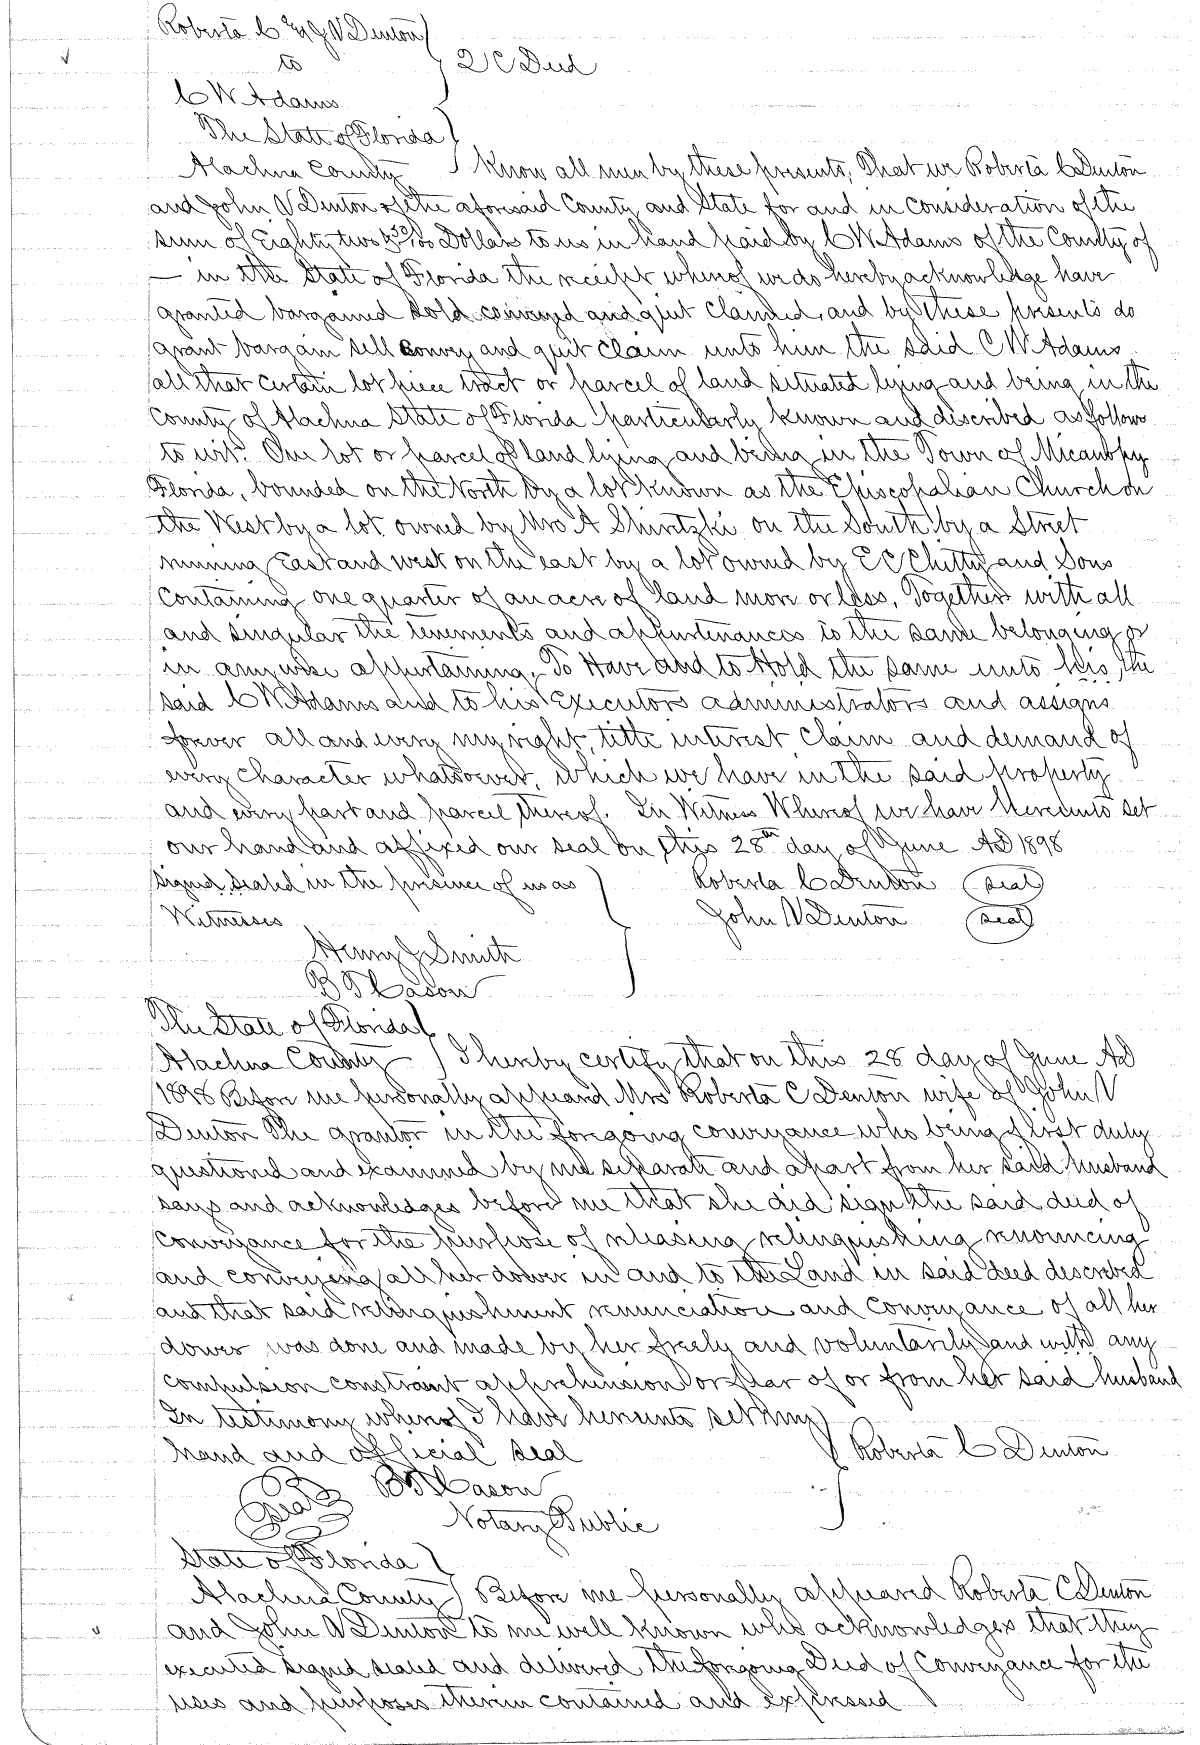 Roberta C & J V Denton
to } Q C Deed
C W Adams
The State of Florida }
Alachua County } Know all men by these presents, That we Roberta C Denton
and John V Denton of the aforesaid County and State for and in consideration of the
sum of Eighty two 50/100 Dollars to us in hand paid by C W Adams of the County of
— in the State of Florida the receipt whereof we do hereby acknowledge have
granted bargained sold conveyed and quit claimed, and by these presents do
grant bargain sell convey and quit claim unto him the said C W Adams
all that certain lot piece tract or parcel of land situated lying and being in the
County of Alachua State of Florida particularly known and described as follows
to wit: One lot or parcel of land lying and being in the Town of Micanopy
Florida, bounded on the North by a lot known as the Episcopalian Church on
the West by a lot owned by Mrs A Shiretzki on the South by a Street
running East and west on the east by a lot owned by E C Chitty and Sons
Containing one quarter of an acre of land more or less. Together with all
and singular the tenements and appurtenances to the same belonging or
in anywise appertaining, To Have and to Hold the same unto him the
said C W Adams and to his Executors administrators and assigns
forever all and every my right, title interest claim and demand of
every character whatsoever, which we have in the said property
and every part and parcel thereof. In Witness Whereof we have hereunto set
our hand and affixed our seal on this 28th day of June AD 1898
Signed, sealed in the presence of us as } Roberta C Denton (seal)
Witnesses John V Denton (seal)
Henry J Smith
B T Cason
The State of Florida }
Alachua County } I hereby certify that on this 28 day of June AD
1898 Before me personally appeard Mrs Roberta C Denton wife of John V
Denton The grantor in the foregoing conveyance who being first duly
questioned and examined by me separate and apart from her said husband
says and acknowledges before me that she did sign the said deed of
conveyance for the purpose of releasing relinquishing renouncing
and conveying all her dower in and to the Land in said deed described
and that said relinquishment renunciation and conveyance of all her
dower was done and made by her freely and voluntarily and with any
compulsion constraint apprehension or fear of or from her said husband
In testimony whereof I have hereunto set my }
hand and official seal } Roberta C Denton
(Seal) B T Cason
Notary Public
State of Florida }
Alachua County } Before me personally appeared Roberta C Denton
and John V Denton to me well known who acknowledges that they
executed signed sealed and delivered the foregoing Deed of Conveyance for the
uses and purposes therein contained and expressed